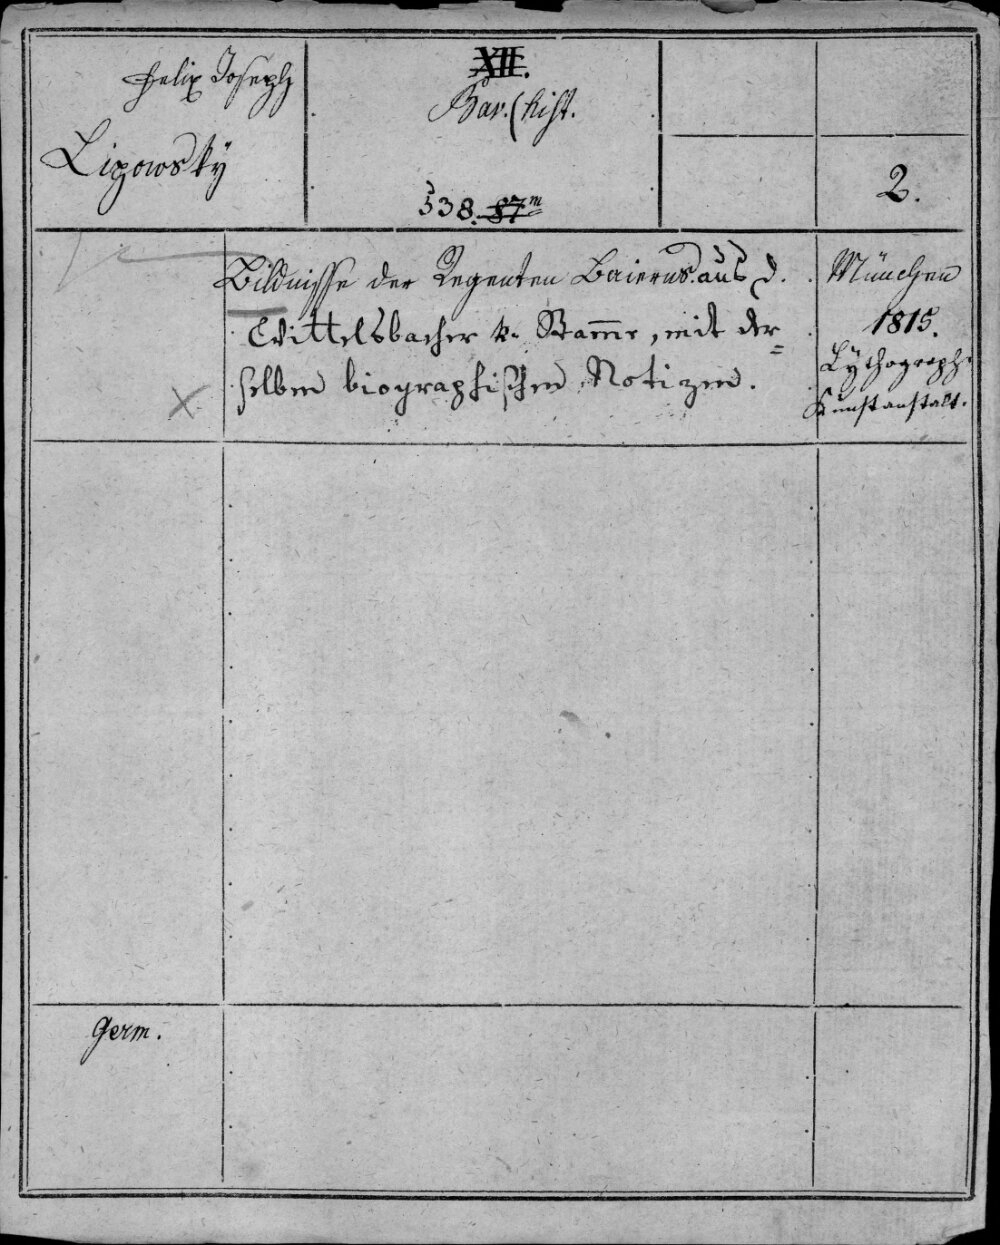 Felix Joseph
Lipowsky
XII.
Bav. (hist.
538. 87m
2.
Bildnisse der Regenten Baierns aus d.
Wittelsbacher Stamme, mit der=
selben biographischen Notizen.
München
1815.
Lythograph.
Kunstanstalt.
Germ.